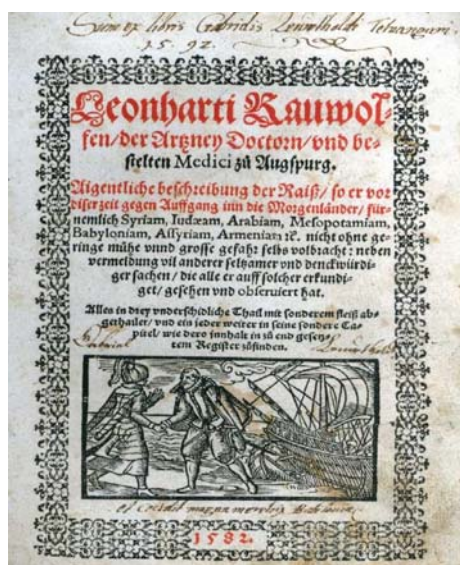 Sum ex libris Gabrielis
1592.
Leonharti Rauwol-
fen/der Artzney Doctorn/vnd be-
stelten Medici zů Augspurg.
Aigentliche beschreibung der Raiß/ so er vor
diser zeit gegen Auffgang inn die Morgenländer/ für-
nemlich Syriam, Iudæam, Arabiam, Mesopotamiam,
Babyloniam, Assyriam, Armeniam ꝛc. nicht ohne ge-
ringe mühe vnnd grosse gefahr selbs volbracht: neben
vermeldung vil anderer seltzamer vnd denckwürdi-
ger sachen/ die alle er auff solcher erkundi-
get/ gesehen vnd obseruiert hat.
Alles in drey vnderschidliche Thail mit sonderem fleiß ab-
gethailet/ vnd ein jeder weiter in seine sondere Ca-
pitel/ wie dero innhalt in zů end gesetz-
tem Register zůfinden.
et
1582.